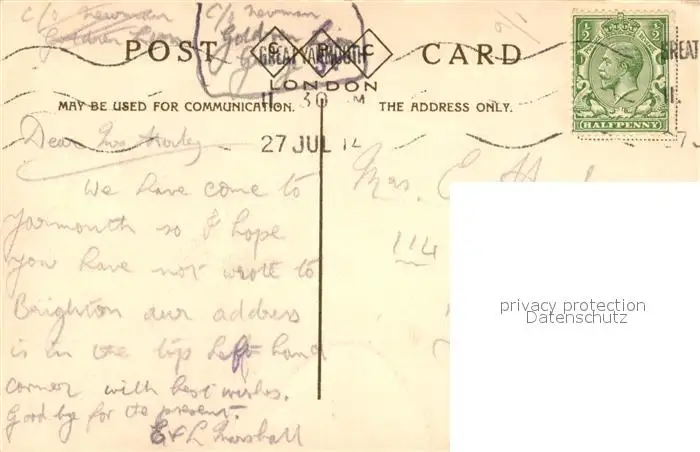 C/o Newman
Golden
C/o Newman
Golden
POST CARD
GREAT YARMOUTH
LONDON
MAY BE USED FOR COMMUNICATION.
THE ADDRESS ONLY.
11 30 AM
27 JUL 14
HALFPENNY
Dear Mrs
We have come to
Yarmouth so I hope
you have not wrote to
Brighton our address
is in the top left hand
corner with best wishes.
Good bye for the present.
E & L Marshall
Mrs. E
114
privacy protection
Datenschutz